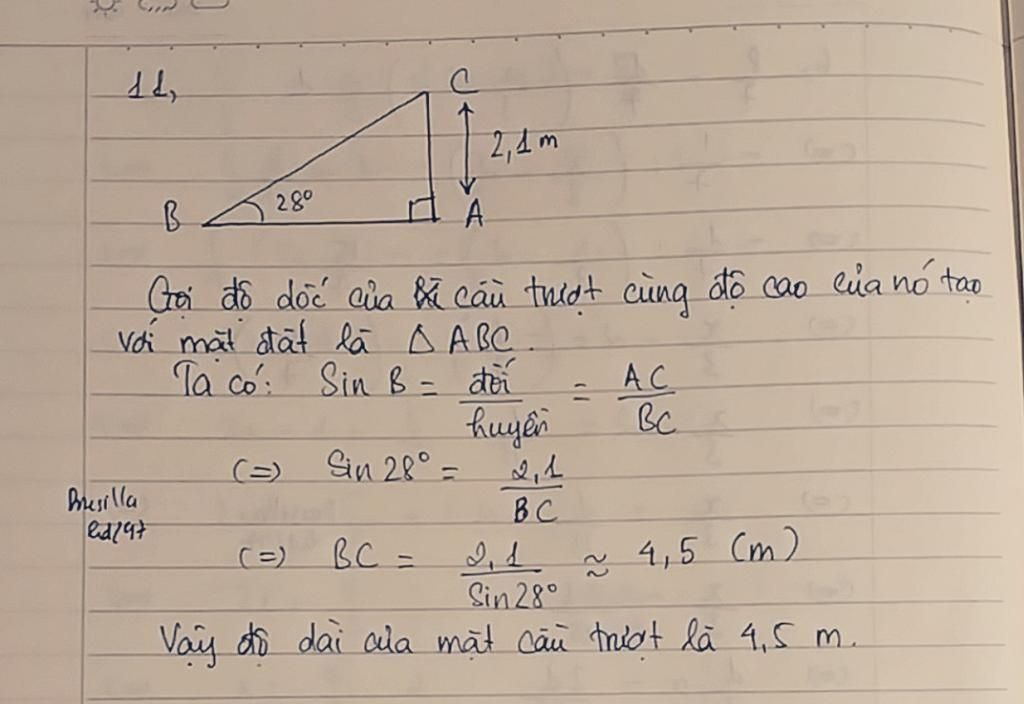 11,
C
2,1 m
28°
B
A
Gọi độ dốc của cầu trượt cùng độ cao của nó tạo
với mặt đất là △ ABC.
Ta có: Sin B = đối/huyền = AC/BC
(=) Sin 28° = 2,1/BC
(=) BC = 2,1/Sin28° ≈ 4,5 (m)
Vậy độ dài của mặt cầu trượt là 4,5 m.